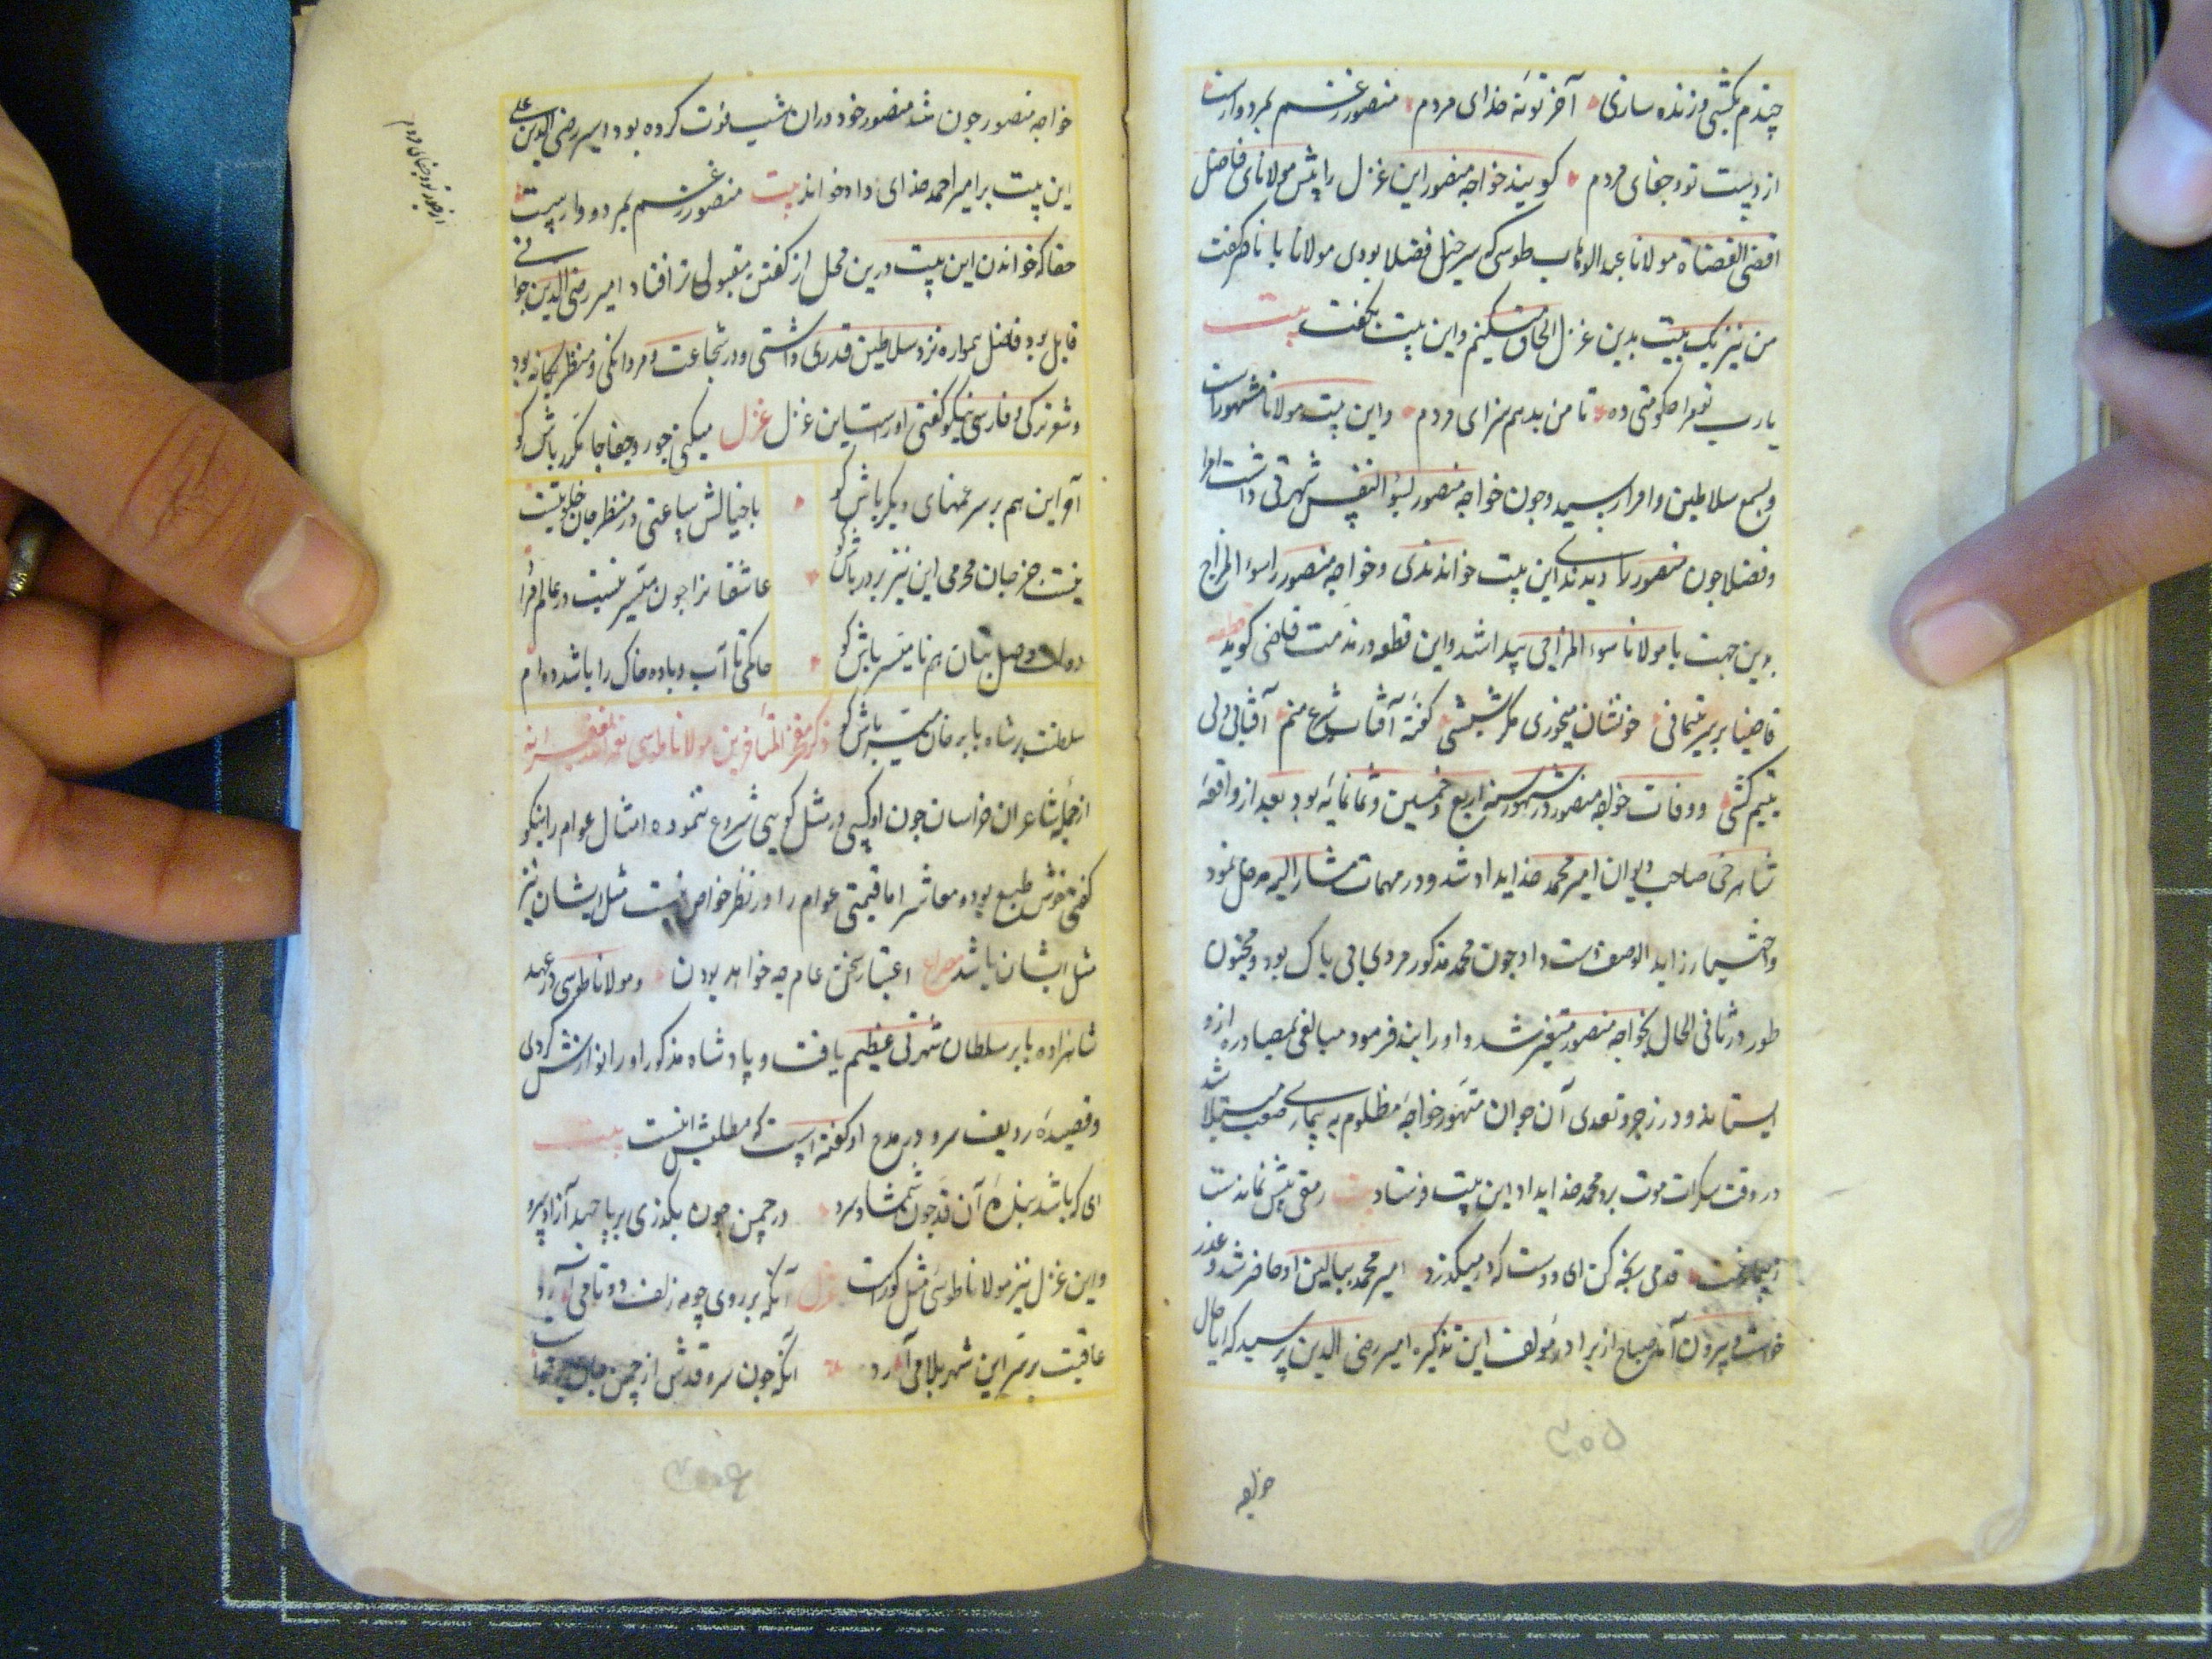 چندم بکشی و زنده سازی آخر تو نه خدای مردم منصور ز غم بمرد و وارست
از دست تو و جفای مردم کویند خواجه منصور این غزل را پیش مولانای فاضل
اقضی القضاة مولانا عبد الوهاب طوسی که سر خیل فضلا بودی مولانا با ناظر گفت
من نیز یک بیت بدین غزل الحاق میکنم و این بیت بگفت بیت
یا رب تو مرا حکومتی ده تا من بدهم سزای مردم و این بیت مولانا مشهور است
و بسمع سلاطین و امرا رسید و چون خواجه منصور بسؤ النفس شهرتی داشت امرا
و فضلا چون منصور را دیدندی این بیت خواندندی و خواجه منصور را سوء المزاج
بدین جهت با مولانا سوء المزاجی پیدا شد و این قطعه در مذمت قاضی کوید قطعه
قاضیا بر سر یتیمانی خونشان میخوری مگر شپشی گفته آفتاب شرع منم آفتابی ولی
یتیم کشی و وفات خواجه منصور در شهور سنه اربع و خمسین و ثمانمایه بود بعد از واقعه
شاهرخی صاحب دیوان امیر محمد خدایداد شد و در مهمات مشار الیه مدخل نمود
و اختیار زاید الوصف است داد چون محمد مذکور مردی بی باک بود و مجنون
طور در ثانی الحال بخواجه منصور متغیر شد و او را بند فرمود مبالغی بمصادره ازو
ایستاند و در زجر و تعدی آن جوان متهور خواجه مظلوم به بیماری صعب مبتلا شد
در وقت سکرات موت بر محمد خدایداد این بیت فرستاد بیت رمقی بیش نماندست
ز بیمار غمت قدمی رنجه کن ای دوست که در میگذرد امیر محمد ببالین او حاضر شد و عذر
خواست و بیرون آمد صباح از برادر مولف این تذکره امیر رضی الدین پرسید که آیا حال
خواجه
۳۰۵
خواجه منصور چون شد منصور خود در ان شب فوت کرده بود امیر رضی الدین علی
این بیت بر امیر احمد خدای داد خواند بیت منصور ز غم بمرد و وارست
از جور تو و جفای مردم
حقا که خواندن این بیت درین محل از گفتن مقبولی تر افتاد امیر رضی الدین جوانی
قابل بود فاضل همواره نزد سلاطین قدری داشتی و در شجاعت و مردانکی و منظر یگانه بود
و شعر ترکی و فارسی نیکو گفتی او راست این غزل غزل میکنی جور و جفا جانا مکرر باش کو
آو این هم بر سر غمهای دیگر باش کو با خیالش ساعتی در منظر جان خلوتیست
نیست جز جان محرمی این نیز بر در باش کو عاشقانرا چون میسر نیست در عالم مراد
دولت وصل بتان هم نا میسر باش کو حاکمی تا آب و باده خاک را باشد دوام
سلطنت بر شاه بابر خان میسر باش کو ذکر مفخر المتاخرین مولانا طوسی
از جمله شاعران خراسان چون او کسی در مثل کویی شروع ننموده امثال عوام را نیکو
گفتی خوش طبع بوده و معاشر اما قیمتی عوام را در نظر خواص نیست مثل ایشان نیز
مثل ایشان باشد مصراع اعتبار سخن عام چه خواهد بودن و مولانا طوسی در عهد
شاهزاده بابر سلطان شهرتی عظیم یافت و پادشاه مذکور او را نوازش کردی
و قصیده ردیف سرو در مدح او گفته است که مطلعش اینست بیت
ای که باشد بنده آن قد چون شمشاد سرو در چمن چون بگذری بر پا جهد آزاد سرو
و این غزل نیز مولانا طوسی مثل گو راست غزل آنکه بر روی چو مه زلف دو تا می آرد
عاقبت بر سر این شهر بلا می آرد آنکه چون سرو قدش از چمن جان